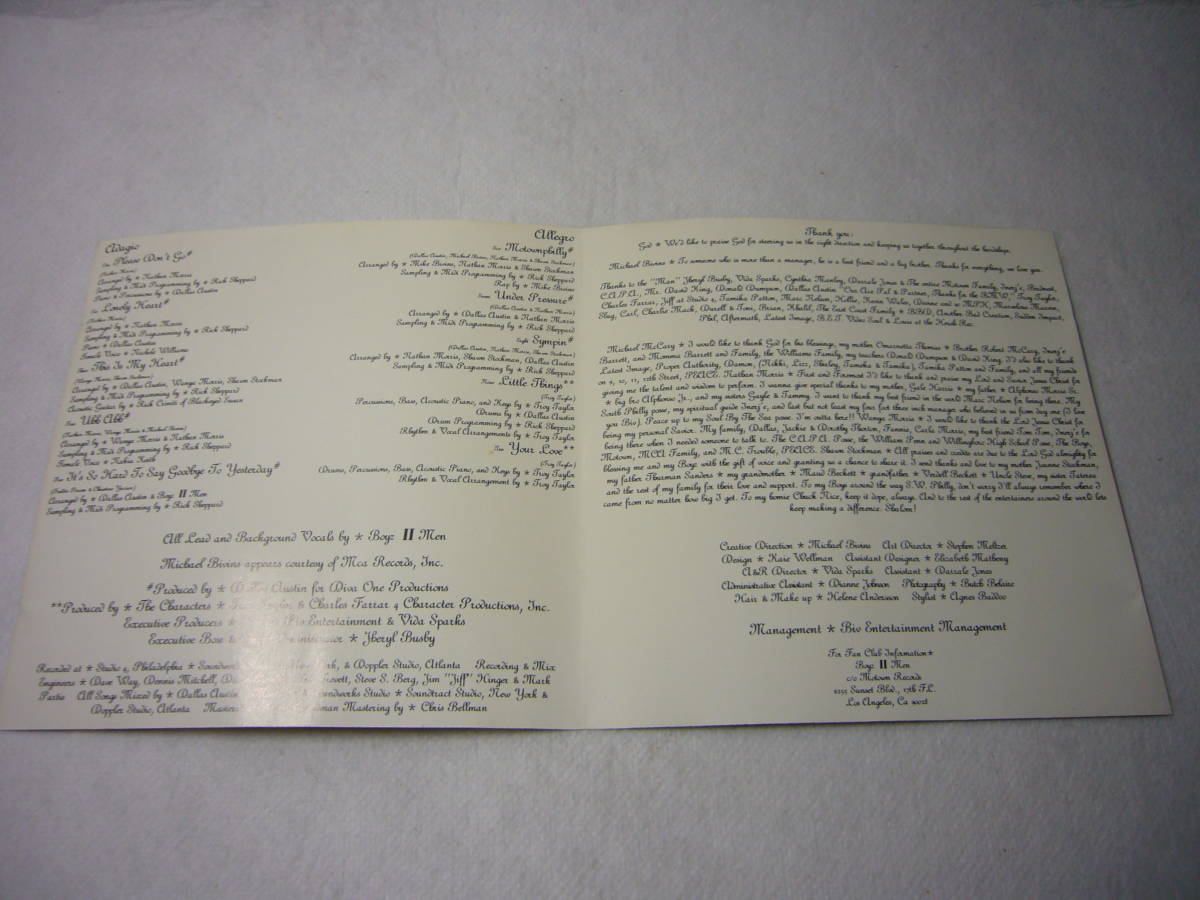 Adagio
One Please Don't Go#
(Nathan Morris)
Arranged by ★ Nathan Morris
Sampling & Midi Programming by ★ Rick Sheppard
Piano & Percussions by ★ Dallas Austin
Two Lonely Heart#
(Nathan Morris)
Arranged by ★ Nathan Morris
Sampling & Midi Programming by ★ Rick Sheppard
Piano ★ Dallas Austin
Female Voice ★ Nichele Williams
Three This Is My Heart#
(Wanya Morris, Shawn Stockman)
Arranged by ★ Dallas Austin, Wanya Morris, Shawn Stockman
Sampling & Midi Programming by ★ Rick Sheppard
Acoustic Guitar by ★ Rick Criniti of
Four Uhh Ahh#
(Nathan Morris, Wanya Morris & Michael Bivins)
Arranged by ★ Wanya Morris & Nathan Morris
Sampling & Midi Programming by ★ Rick Sheppard
Female Voice ★
Five It's So Hard To Say Goodbye To Yesterday#
(Freddie Perren & Christine Yarian)
Arranged by ★ Dallas Austin & Boyz II Men
Sampling & Midi Programming by ★ Rick Sheppard
Allegro
Six Motownphilly#
(Dallas Austin, Michael Bivins, Nathan Morris & Shawn Stockman)
Arranged by ★ Mike Bivins, Nathan Morris & Shawn Stockman
Sampling & Midi Programming by ★ Rick Sheppard
Rap by ★ Mike Bivins
Seven Under Pressure#
(Dallas Austin & Nathan Morris)
Arranged by ★ Dallas Austin & Nathan Morris
Sampling & Midi Programming by ★ Rick Sheppard
Eight Sympin#
(Dallas Austin, Nathan Morris, Shawn Stockman)
Arranged by ★ Nathan Morris, Shawn Stockman, Dallas Austin
Sampling & Midi Programming by ★ Rick Sheppard
Nine Little Things**
(Troy Taylor)
Percussions, Bass, Acoustic Piano, and Keys by ★ Troy Taylor
Drums by ★ Dallas Austin
Drum Programming by ★ Rick Sheppard
Rhythm & Vocal Arrangements by ★ Troy Taylor
Ten Your Love**
(Troy Taylor)
Drums, Percussions, Bass, Acoustic Piano, and Keys by ★ Troy Taylor
Rhythm & Vocal Arrangement by ★ Troy Taylor
All Lead and Background Vocals by ★ Boyz II Men
Michael Bivins appears courtesy of Mca Records, Inc.
#Produced by ★ Austin for Diva One Productions
**Produced by ★ The Characters ★ & Charles Farrar 4 Character Productions, Inc.
Executive Producers ★ Biv Entertainment & Vida Sparks
Executive ★ Jheryl Busby
Recorded at ★ Studio 4, Philadelphia ★ York, & Doppler Studio, Atlanta Recording & Mix
Engineers ★ Dave Way, Dennis Mitchell, Steve S. Berg, Jim "Jiff" Hinger & Mark
Partis All Songs Mixed by ★ Dallas Austin Soundworks Studio ★ Soundtract Studio, New York &
Doppler Studio, Atlanta Mastering by ★ Chris Bellman
Thank you:
God ★ We'd like to praise God for steering us in the right direction and keeping us together throughout the hardships.
Michael Bivins ★ To someone who is more than a manager, he is a best friend and a big brother. Thanks for everything, we love you.
Thanks to the "Man" Jheryl Busby, Vida Sparks, Cynthia Manley, Darrale Jones & The entire Motown Family,
C.A.P.A., Mr. David King, Donald Dumpson, Dallas Austin "Our Ace Pal & Partner, Thanks for the BMW," Troy Taylor,
Charles Farrar, Jiff at Studio 4, Tamika Patton, Marc Nelson,
Slug, Carl, Charlie Mack, Darell & Toni, Brian, Khalil, The East Coast Family ★ BBD, Another Bad Creation, Sudden Impact,
Phil, Aftermath, Latest Image, B.E.T. Video Soul & Louis at the
Michael McCary ★ I would like to thank God for his blessings, my mother Omarnette Thomas ★ Brother Robert McCary,
Barrett, and Momma Barrett and Family, the Williams Family, my teachers Donald Dumpson & David King. I'd also like to thank
Latest Image, Proper Authority, Damon, (Nikki, Lizz, Tameka & Tamika), Tamika Patton and Family, and all my friends
on 9, 10, 11, 12th Street, PEACE. Nathan Morris ★ First and Foremost I'd like to thank and praise my Lord and Savior Jesus Christ for
giving me the talent and wisdom to perform. I wanna give special thanks to my mother, Gale Harris ★ my father ★ Alphonso Morris Sr.
★ big bro Alphonso Jr., and my sisters Gayle & Tammy. I want to thank my best friend in the world Marc Nelson for being there. My
South Philly posse, my spiritual guide and last but not least my four foot three inch manager who believed in us from day one (I love
you Biv). Peace up to my Soul By The Sea posse. I'm outta here!! Wanya Morris ★ I would like to thank the Lord Jesus Christ for
being my personal Savior. My family, (Dallas, Jackie & Dorothy Thorton, Fannie, Carla Morris, my best friend Tom Tom, for
being there when I needed someone to talk to. The C.A.P.A. Posse, the William Penn and Willingboro High School Posse, The Boys,
Motown, MCA Family, and M.C. Trouble, PEACE. Shawn Stockman ★ All praises and credits are due to the Lord God almighty for
blessing me and my Boyz with the gift of voice and granting us a chance to share it. I send thanks and love to my mother Joanne Stockman,
my father Thurman Sanders ★ my grandmother ★ Maud Beckett ★ grandfather ★ Verdell Beckett ★ Uncle Steve, my sister
and the rest of my family for their love and support. To my Boyz around the way S.W. Philly, don't worry I'll always remember where I
came from no matter how big I get. To my homie Chuck Nice, keep it dope, always. And to the rest of the entertainers around the world lets
keep making a difference. Shalom!
Creative Direction ★ Michael Bivins Art Director ★ Stephen Meltzer
Design ★ Kaie Wellman Assistant Designer ★ Elizabeth Matheny
A&R Director ★ Vida Sparks Assistant ★ Darrale Jones
Administrative Assistant ★ Dianne Johnson Photography ★ Butch Belaire
Hair & Make up ★ Helene Anderson Stylist ★ Agnes Baddoo
Management ★ Biv Entertainment Management
For Fan Club Information★
Boyz II Men
c/o Motown Records
6255 Sunset Blvd., 17th FL.
Los Angeles, Ca 90028